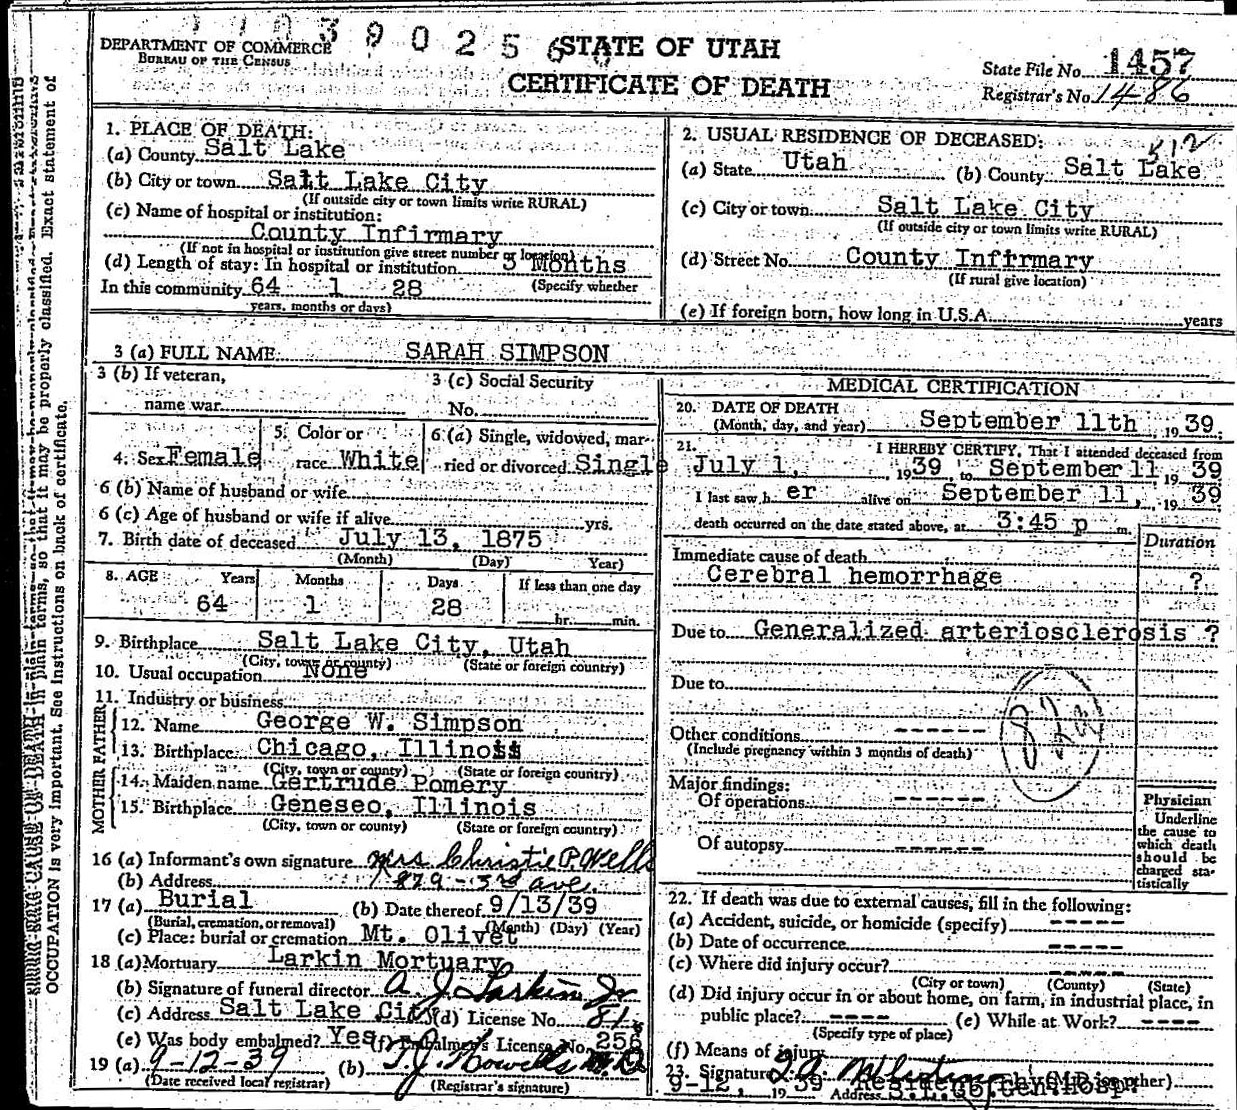 39025
STATE OF UTAH
DEPARTMENT OF COMMERCE
BUREAU OF THE CENSUS
CERTIFICATE OF DEATH
State File No. 1457
Registrar's No. 1486
1. PLACE OF DEATH:
(a) County Salt Lake
(b) City or town Salt Lake City
(If outside city or town limits write RURAL)
(c) Name of hospital or institution:
County Infirmary
(If not in hospital or institution give street number or location)
(d) Length of stay: In hospital or institution 3 Months
In this community 64 1 28 (Specify whether
years, months or days)
2. USUAL RESIDENCE OF DECEASED:
(a) State Utah (b) County Salt Lake
(c) City or town Salt Lake City
(If outside city or town limits write RURAL)
(d) Street No. County Infirmary
(If rural give location)
(e) If foreign born, how long in U.S.A. years
3 (a) FULL NAME SARAH SIMPSON
3 (b) If veteran,
name war
3 (c) Social Security
No.
4. Sex Female
5. Color or
race White
6 (a) Single, widowed, mar-
ried or divorced Single
6 (b) Name of husband or wife
6 (c) Age of husband or wife if alive yrs.
7. Birth date of deceased July 13, 1875
(Month) (Day) Year)
8. AGE Years Months Days If less than one day
64 1 28 hr. min.
9. Birthplace Salt Lake City, Utah
(City, town or county) (State or foreign country)
10. Usual occupation None
11. Industry or business
FATHER
12. Name George W. Simpson
13. Birthplace Chicago, Illinois
(City, town or county) (State or foreign country)
MOTHER
14. Maiden name Gertrude Pomery
15. Birthplace Geneseo, Illinois
(City, town or county) (State or foreign country)
16 (a) Informant's own signature Mrs. Christie P. Wells
(b) Address 879 - 3rd ave.
17 (a) Burial (b) Date thereof 9/13/39
(Burial, cremation, or removal) (Month) (Day) (Year)
(c) Place: burial or cremation Mt. Olivet
18 (a) Mortuary Larkin Mortuary
(b) Signature of funeral director A J Larkin Jr
(c) Address Salt Lake City (d) License No. 81
(e) Was body embalmed? Yes (f) Embalmer's License No. 256
19 (a) 9-12-39 (b) T. J. Howells M.D.
(Date received local registrar) (Registrar's signature)
MEDICAL CERTIFICATION
20. DATE OF DEATH
(Month, day, and year) September 11th, 1939.
21. I HEREBY CERTIFY, That I attended deceased from
July 1, 1939 to September 11 1939
I last saw her alive on September 11, 1939
death occurred on the date stated above, at 3:45 p m.
Duration
Immediate cause of death
Cerebral hemorrhage ?
Due to Generalized arteriosclerosis ?
Due to
Other conditions ------
(Include pregnancy within 3 months of death)
Major findings:
Of operations ------
Of autopsy ------
Physician
Underline
the cause to
which death
should be
charged sta-
tistically
22. If death was due to external causes, fill in the following:
(a) Accident, suicide, or homicide (specify) -----
(b) Date of occurrence -----
(c) Where did injury occur? -----
(City or town) (County) (State)
(d) Did injury occur in or about home, on farm, in industrial place, in
public place? ---- (e) While at Work? ----
(Specify type of place)
(f) Means of injury
23. Signature
9-12, 1939 Address S.L. Co. Gen. Hosp.
OCCUPATION is very important. See instructions on back of certificate.
CAUSE OF DEATH in plain terms, so that it may be properly classified. Exact statement of